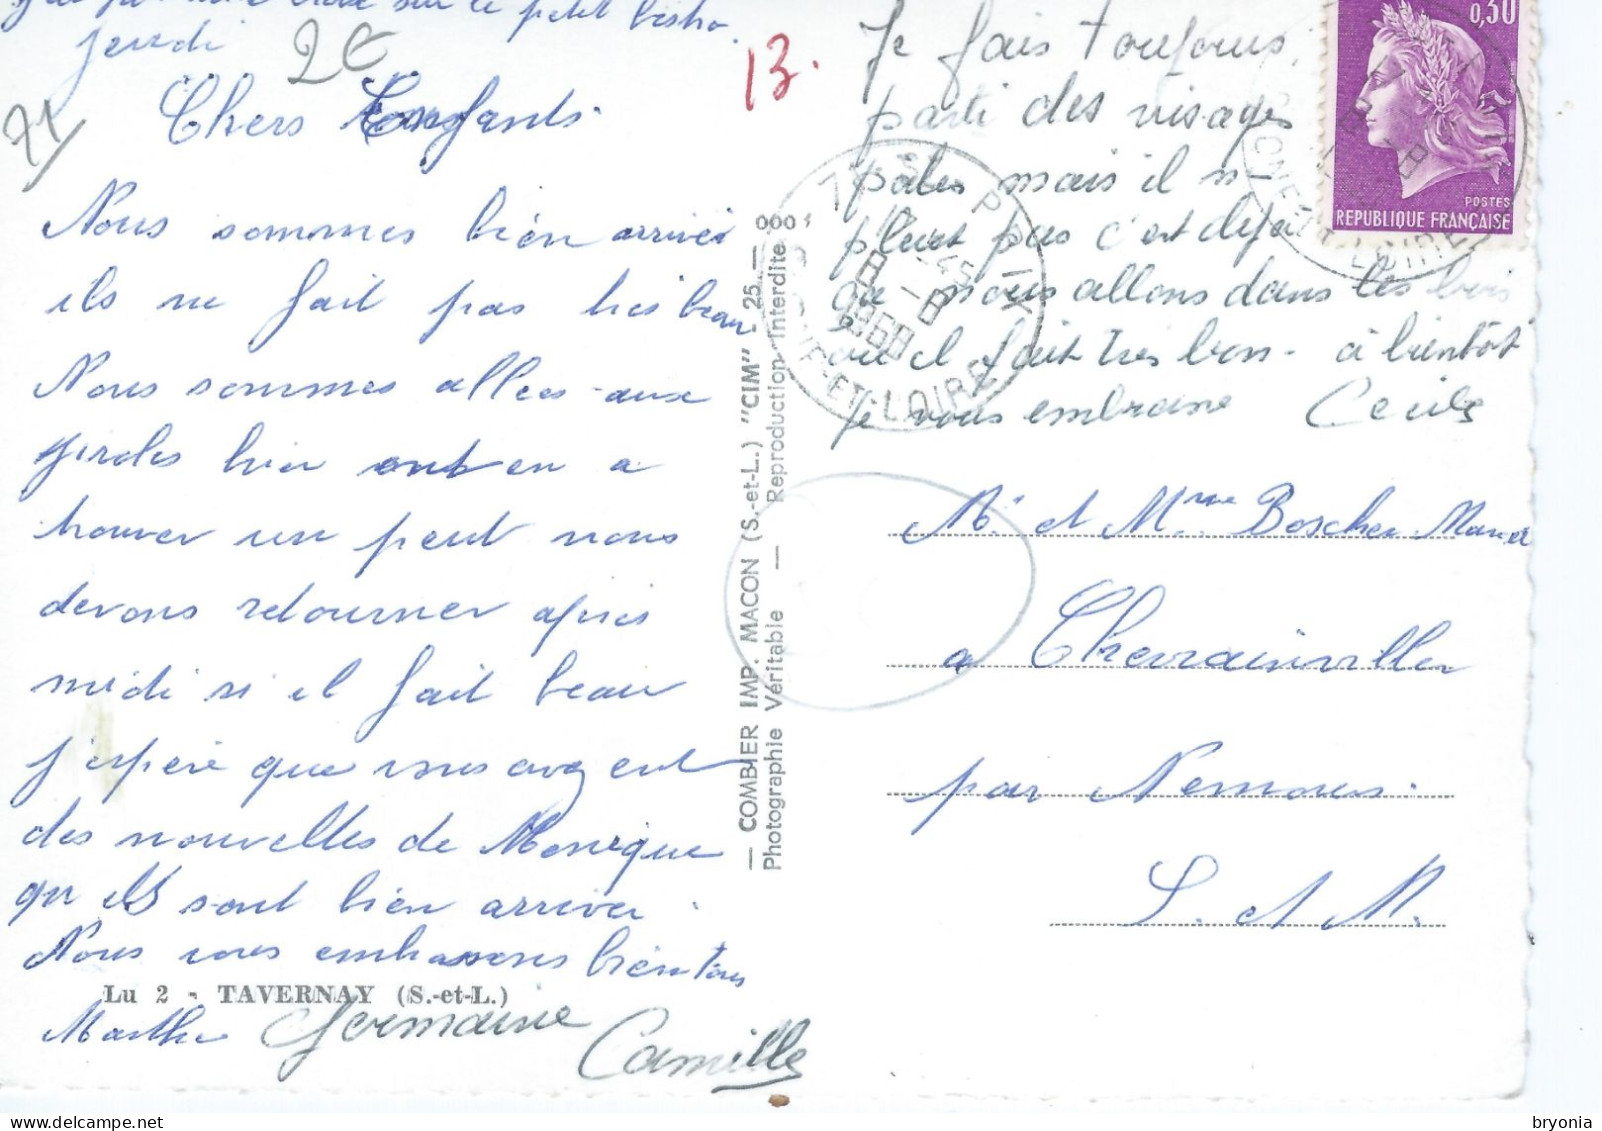 petit bistro.
Jeudi
2€
71
Chers Enfants
Nous sommes bien arrivés
ils ne fait pas tres beau
Nous sommes allees aux
girolles hier ont en a
trouver un peut nous
devons retourner apres
midi si il fait beau
j'espère que vous avez eut
des nouvelles de Monique
qu ils sont bien arriver.
Nous vous embrassons bien tous
Lu 2 - TAVERNAY (S.-et-L.)
Marthe Germaine
Camille
13.
— COMBIER IMP. MACON (S.-et-L.) "CIM" - 25 —
Photographie Véritable — Reproduction Interdite
Je fais toujours
parti des visages
pales mais il n
pleut pas c'est deja
que nous allons dans les bois
ou il fait tres bon - à bientôt
Je vous embrasse Cecile
0,30
POSTES
REPUBLIQUE FRANÇAISE
71
8 - 8
1968
-ET-LOIRE
Mr et Mme Boscher Marcel
a Chevrainvilliers
par Nemours.
S. et M.
bryonia